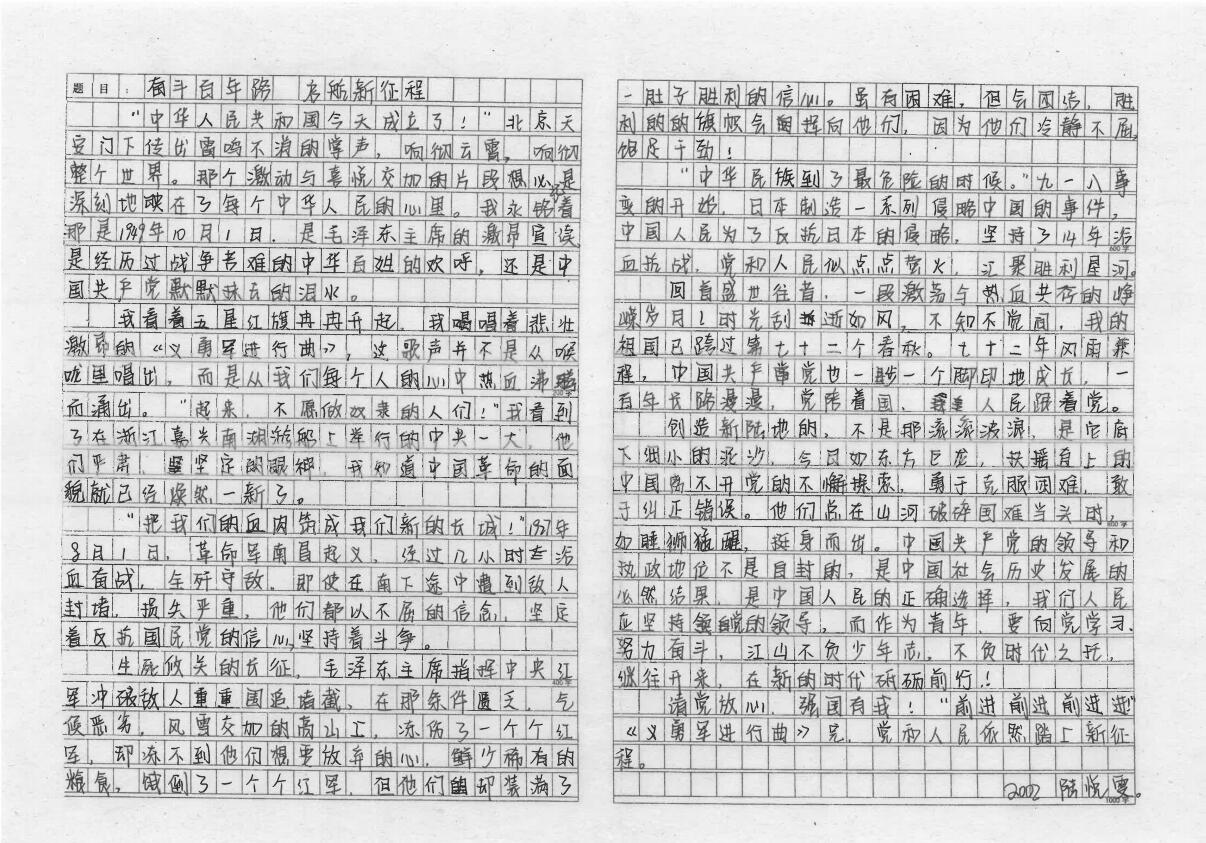 题目：奋斗百年路 启航新征程
“中华人民共和国今天成立了！”北京天
安门下传出雷鸣不消的掌声，响彻云霄，响彻
整个世界。那个激动与喜悦交加的片段想必是
深刻地映在了每个中华人民的心里。我永铭着
那是1949年10月1日，是毛泽东主席的激昂宣读
是经历过战争苦难的中华百姓的欢呼，还是中
国共产党默默抹去的泪水。
我看着五星红旗冉冉升起，我唱着悲壮
激昂的《义勇军进行曲》，这歌声并不是从喉
咙里唱出，而是从我们每个人的心中热血沸腾
200字
而涌出。“起来，不愿做奴隶的人们！”我看到
了在浙江嘉兴南湖游船上举行的中央一大，他
们严肃、坚定的眼神，我知道中国革命的面
貌就已经焕然一新了。
“把我们的血肉筑成我们新的长城！”1927年
8月1日，革命军南昌起义，经过几小时浴
血奋战，全歼守敌。即使在南下途中遭到敌人
封堵，损失严重，他们都以不屈的信念，坚定
着反抗国民党的信心，坚持着斗争。
生死攸关的长征，毛泽东主席指挥中央红
400字
军冲破敌人重重围追堵截，在那条件匮乏，气
候恶劣，风雪交加的高山上，冻伤了一个个红
军，却冻不到他们想要放弃的心，鲜少稀有的
粮食，饿倒了一个个红军，但他们的却装满了
一胜了胜利的信心。虽有困难，但会团结，胜
利的的旗帜会挥向他们，因为他们冷静不屈，
饱足干劲！
“中华民族到了最危险的时候。”九一八事
变的开始，日本制造一系列侵略中国的事件，
中国人民为了反抗日本的侵略，坚持了14年浴
600字
血抗战，党和人民似点点萤火，汇聚胜利星河。
回首盛世往昔，一段激荡与热血共存的峥
嵘岁月！时光刮逝如风，不知不觉间，我的
祖国已跨过第七十二个春秋。七十二年风雨兼
程，中国共产党也一步一个脚印地成长，一
百年长路漫漫，党陪着国，人民跟着党。
创造新陆地的，不是那滚滚波浪，是它底
下细小的泥沙，今日如东方巨龙，扶摇直上的
中国离不开党的不懈探索，勇于克服困难，敢
800字
于纠正错误。他们总在山河破碎国难当头时，
如睡狮猛醒，挺身而出。中国共产党的领导和
执政地位不是自封的，是中国社会历史发展的
必然结果，是中国人民的正确选择，我们人民
应坚持党的领导，而作为青年，要向党学习、
努力奋斗，江山不负少年志，不负时代之托，
继往开来，在新的时代砥砺前行！
请党放心，强国有我！“前进前进前进进！”
《义勇军进行曲》完，党和人民依然踏上新征
程。
2002 陆悦雯。
1000字